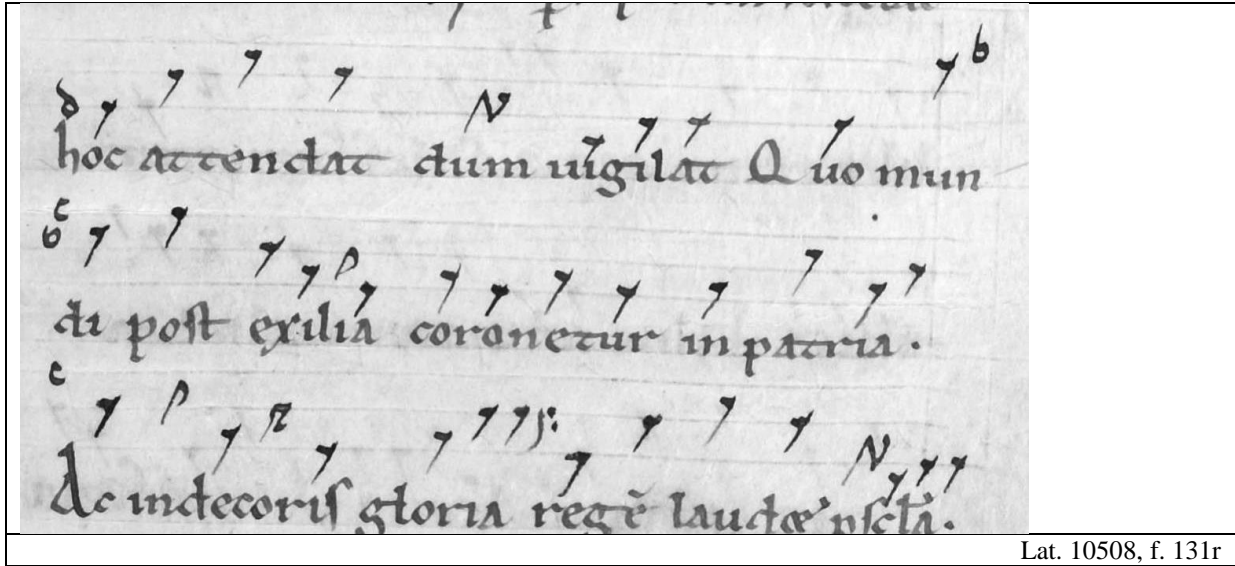 d b
hoc attendat dum uigilat Quo mun
c
b
di post exilia coronetur in patria.
c
Ac indecoris gloria regē laudæ psclā.
Lat. 10508, f. 131r